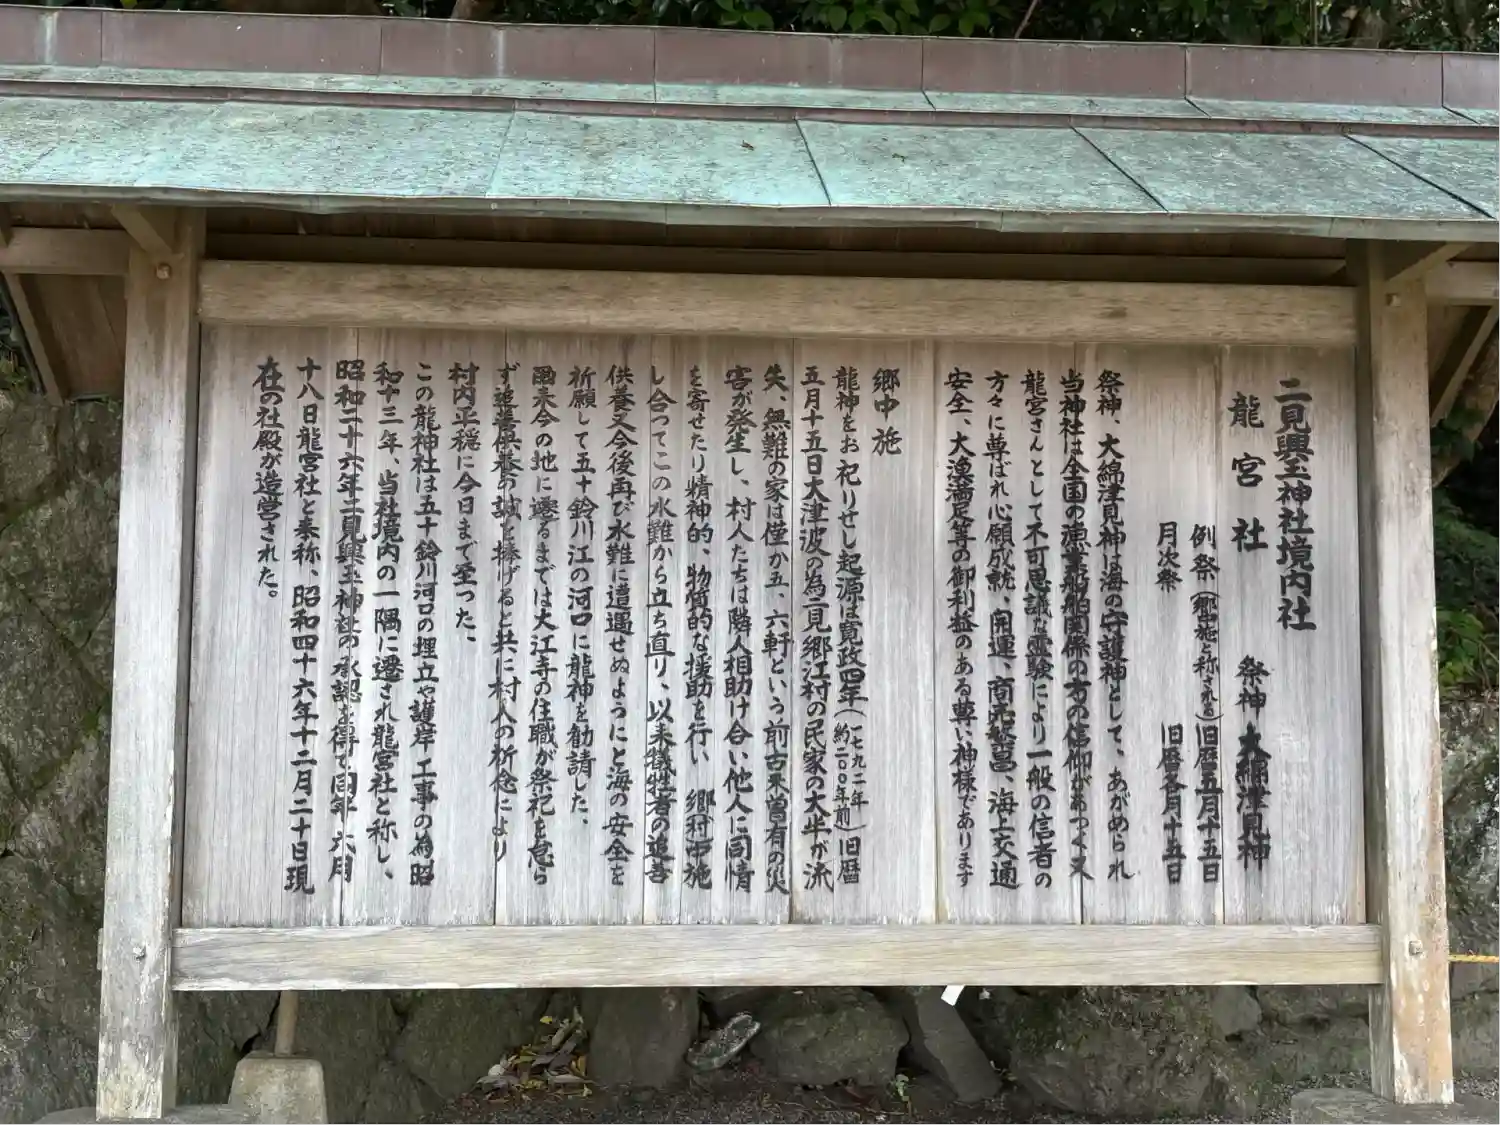 二見興玉神社境内社
龍宮社　祭神 大綿津見神
例祭(郷中施と称される)旧暦五月十五日
月次祭　旧暦各月十五日
祭神、大綿津見神は海の守護神として、あがめられ
当神社は全国の漁業船舶関係の方の信仰があつく又
龍宮さんとして不可思議な霊験により一般の信者の
方々に尊ばれ心願成就、開運、商売繁昌、海上交通
安全、大漁満足等の御利益のある尊い神様であります
郷中施
龍神をお祀りせし起源は寛政四年(一七九二年 約二〇〇年前)旧暦
五月十五日大津波の為二見郷江村の民家の大半が流
失、無難の家は僅か五、六軒という前古未曽有の災
害が発生し、村人たちは隣人相助け合い他人に同情
を寄せたり精神的、物質的な援助を行い 郷村中施
し合ってこの水難から立ち直り、以来犠牲者の追吾
供養又今後再び水難に遭遇せぬようにと海の安全を
祈願して五十鈴川江の河口に龍神を勧請した、
爾来今の地に遷るまでは大江寺の住職が祭祀を怠ら
ず追善供養の誠を捧げると共に村人の祈念により
村内平穏に今日まで至った、
この龍神社は五十鈴川河口の埋立や護岸工事の為昭
和十三年、当社境内の一隅に遷され龍宮社と称し、
昭和二十六年二見興玉神社の承認を得て同年 六月
十八日龍宮社と奉称、昭和四十六年十二月二十日現
在の社殿が造営された。